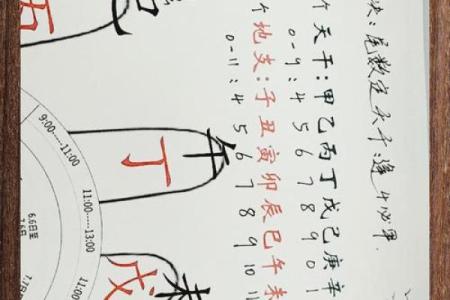 尾数定天干:逢4必甲.
个天干:甲乙丙丁戊己庚辛
0-9:4 5 6 7 8 9 0 1
个地支:子丑寅卯辰巳午未
0-11:4 5 6 7 8 9 10 11
午
丁
未
戊
9:00----11:00
11:00----13:00
6.6日至
7.6日